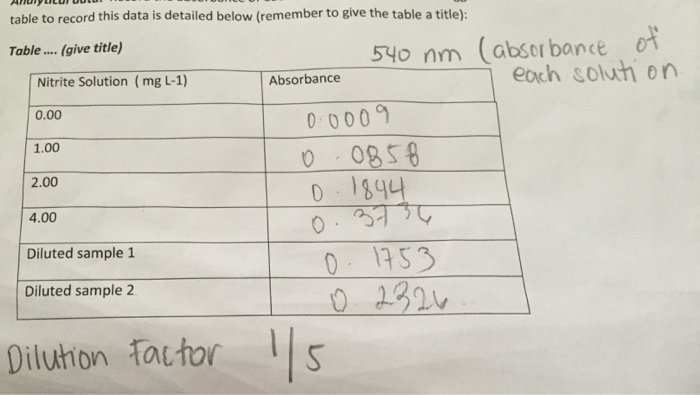 table to record this data is detailed below (remember to give the table a title):
Table .... (give title)
540 nm (absorbance of
each solution
Nitrite Solution ( mg L-1) Absorbance
0.00 0.0009
1.00 0.0858
2.00 0.1844
4.00 0.3736
Diluted sample 1 0.1753
Diluted sample 2 0.2326
Dilution Factor 1/5